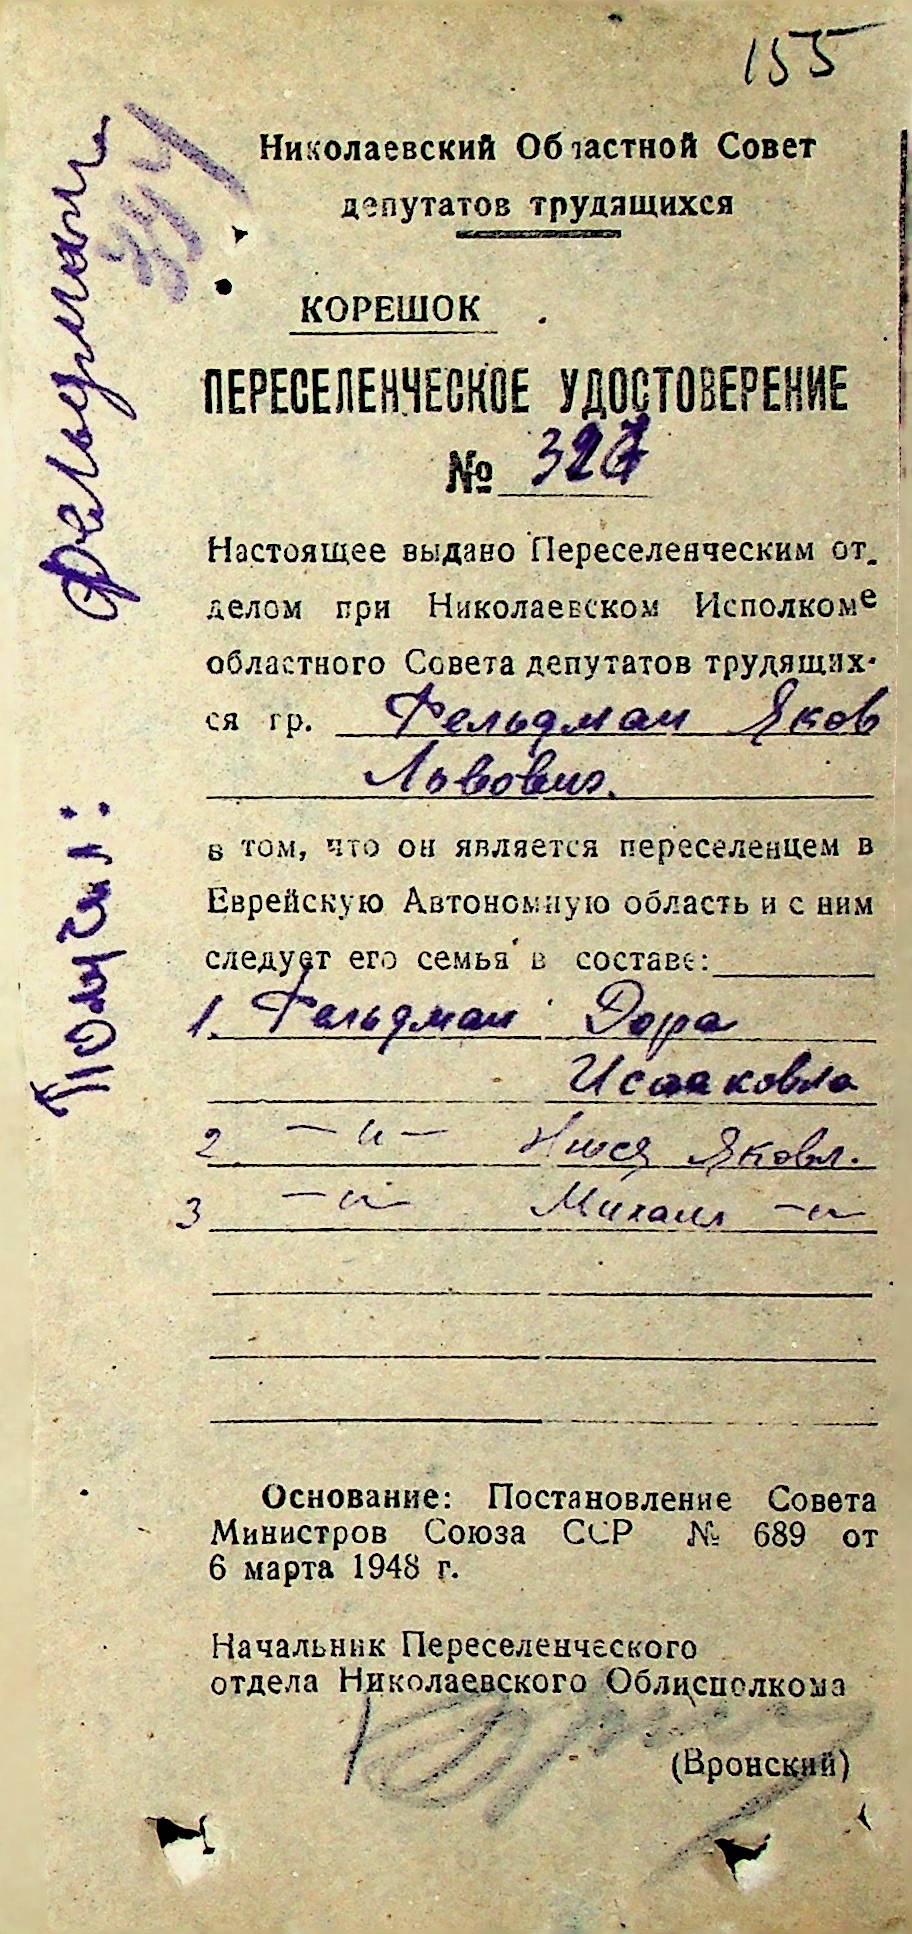 155
Николаевский Областной Совет
депутатов трудящихся
КОРЕШОК
ПЕРЕСЕЛЕНЧЕСКОЕ УДОСТОВЕРЕНИЕ
№
Настоящее выдано Переселенческим от-
делом при Николаевском Исполкоме
областного Совета депутатов трудящих-
ся гр. Фельдман Яков
Львович.
в том, что он является переселенцем в
Еврейскую Автономную область и с ним
следует его семья в составе:
1. Фельдман Дора
Исааковна
2. —"— Нюся Яковл.
3 —"— Михаил —"—
Основание: Постановление Совета
Министров Союза ССР № 689 от
6 марта 1948 г.
Начальник Переселенческого
отдела Николаевского Облисполкома
(Вронский)
Получил: Фельдман